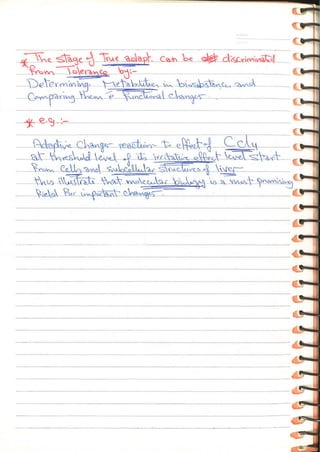 * The stage of True adapt. can be discriminated
from Tolerance by:-
Determining Metabolites in biosubstance and
Comparing them c̄ functional changes.
* e.g.:-
Adaptive Changes reaction to effect of Ccl4
at threshold level of its irritative effect level start
from Cells and subcellular structures of liver
thus illustrate that molecular biology is a most promising
field for important changes.